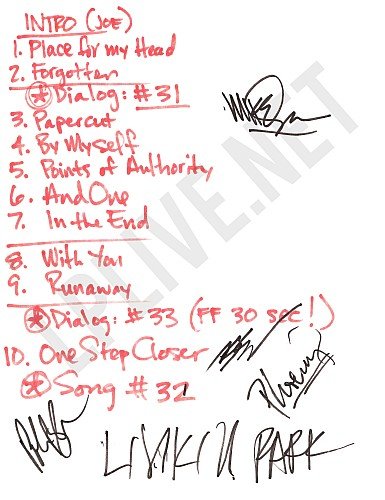 INTRO (JOE)
1. Place for my Head
2. Forgotten
* Dialog: #31
3. Papercut
4. By Myself
5. Points of Authority
6. And One
7. In the End
8. With You
9. Runaway
* Dialog: #33 (FF 30 SEC!)
10. One Step Closer
* Song #32
LINKIN PARK
LPLIVE.NET